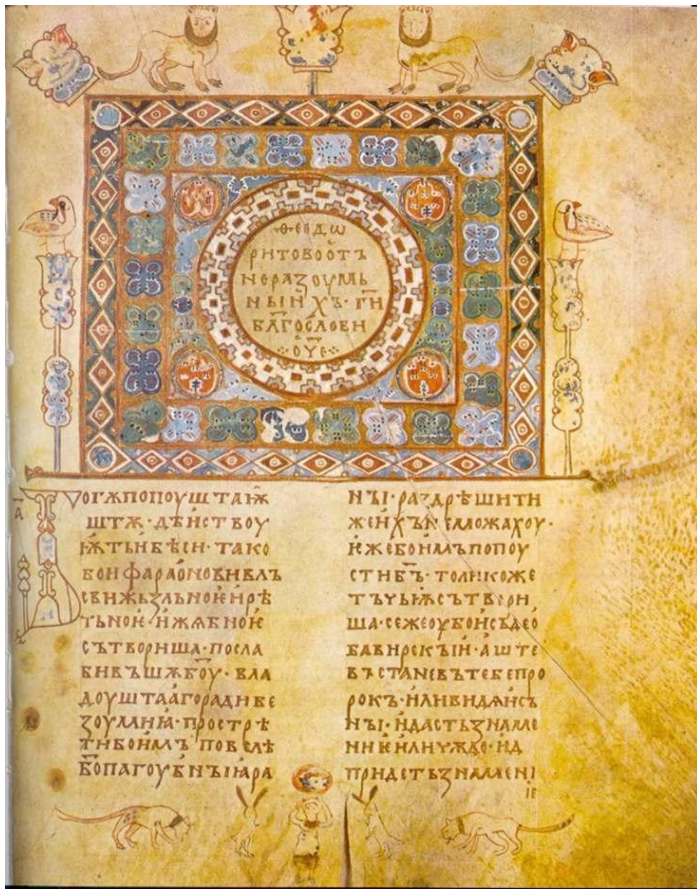 Ѳеодѡ
ритовоотъ
неразоумь
ныихъ · г҃и
бл҃гослови
о҃ч҃е
б҃огѫпопоуштаѭ
штѫ · дѣиствоу
ѭтьибѣси · тако
боифараоновивлъ
свижьзльноѥирѣ
ноѥ · ижѧбноѥ
сътвориша · посла
бивъшѫб҃оу · вла
доуштаагорадибе
зоумиꙗ · прострѣ
тибоимъповелѣ
б҃опагоубныиꙗра
ны · раздрѣшити
жеихънеможахоу ·
ижебоимъпопоу
стиб҃ъ · толикоже
тъчьѭсътвори
ша · сежеоубоисъдео
бавирекыи · аште
въстаневътебепро
рокъ · иливидѧисъ
ны · идастьзнаме
ниѥиличюдо · ид
придетьзнамени
ѥ